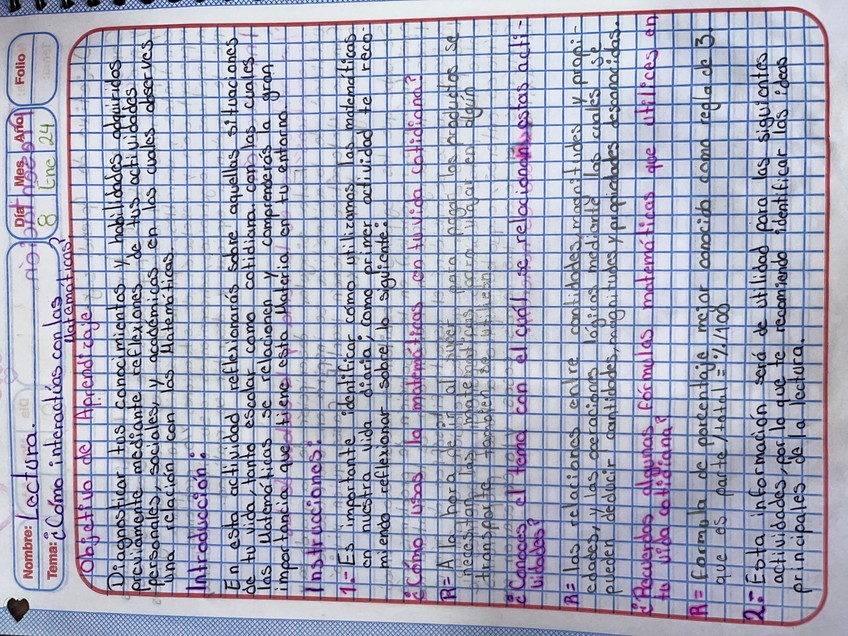 Nombre: Lectura. Día Mes Año Folio
Tema: ¿Cómo interactúas con las 8 Ene 24
Matemáticas?
Objetivo de Aprendizaje
Diagnosticar tus conocimientos y habilidades adquiridos
previamente mediante reflexiones de tus actividades
personales, sociales, y académicas en las cuales observes
una relación con las Matemáticas.
Introducción:
En esta actividad reflexionarás sobre aquellas situaciones
de tu vida, tanto escolar como cotidiana, con las cuales
las Matemáticas se relacionen y comprenderás la gran
importancia que tiene esta Materia en tu entorno.
Instrucciones:
1.- Es importante identificar cómo utilizamos las matemáticas
en nuestra vida diaria; como primer actividad te reco-
miendo reflexionar sobre lo siguiente:
¿Cómo usas la matemáticas en tu vida cotidiana?
R= A la hora de ir al súper para pagar los productos se
necesitan las matemáticas para viajar en algún
transporte también se utilizan.
¿Conoces el tema con el cuál se relacionan estas acti-
vidades?
R= las relaciones entre cantidades, magnitudes y propi-
edades, y las operaciones lógicas mediante las cuales se
pueden deducir cantidades, magnitudes y propiedades desconocidas.
¿Recuerdas algunas fórmulas matemáticas que utilices en
tu vida cotidiana?
R= formula de porcentaje mejor conocido como regla de 3.
que es parte/total = %/100
2.- Esta información será de utilidad para las siguientes
actividades, por la que te recomiendo identificar las ideas
principales de la lectura.